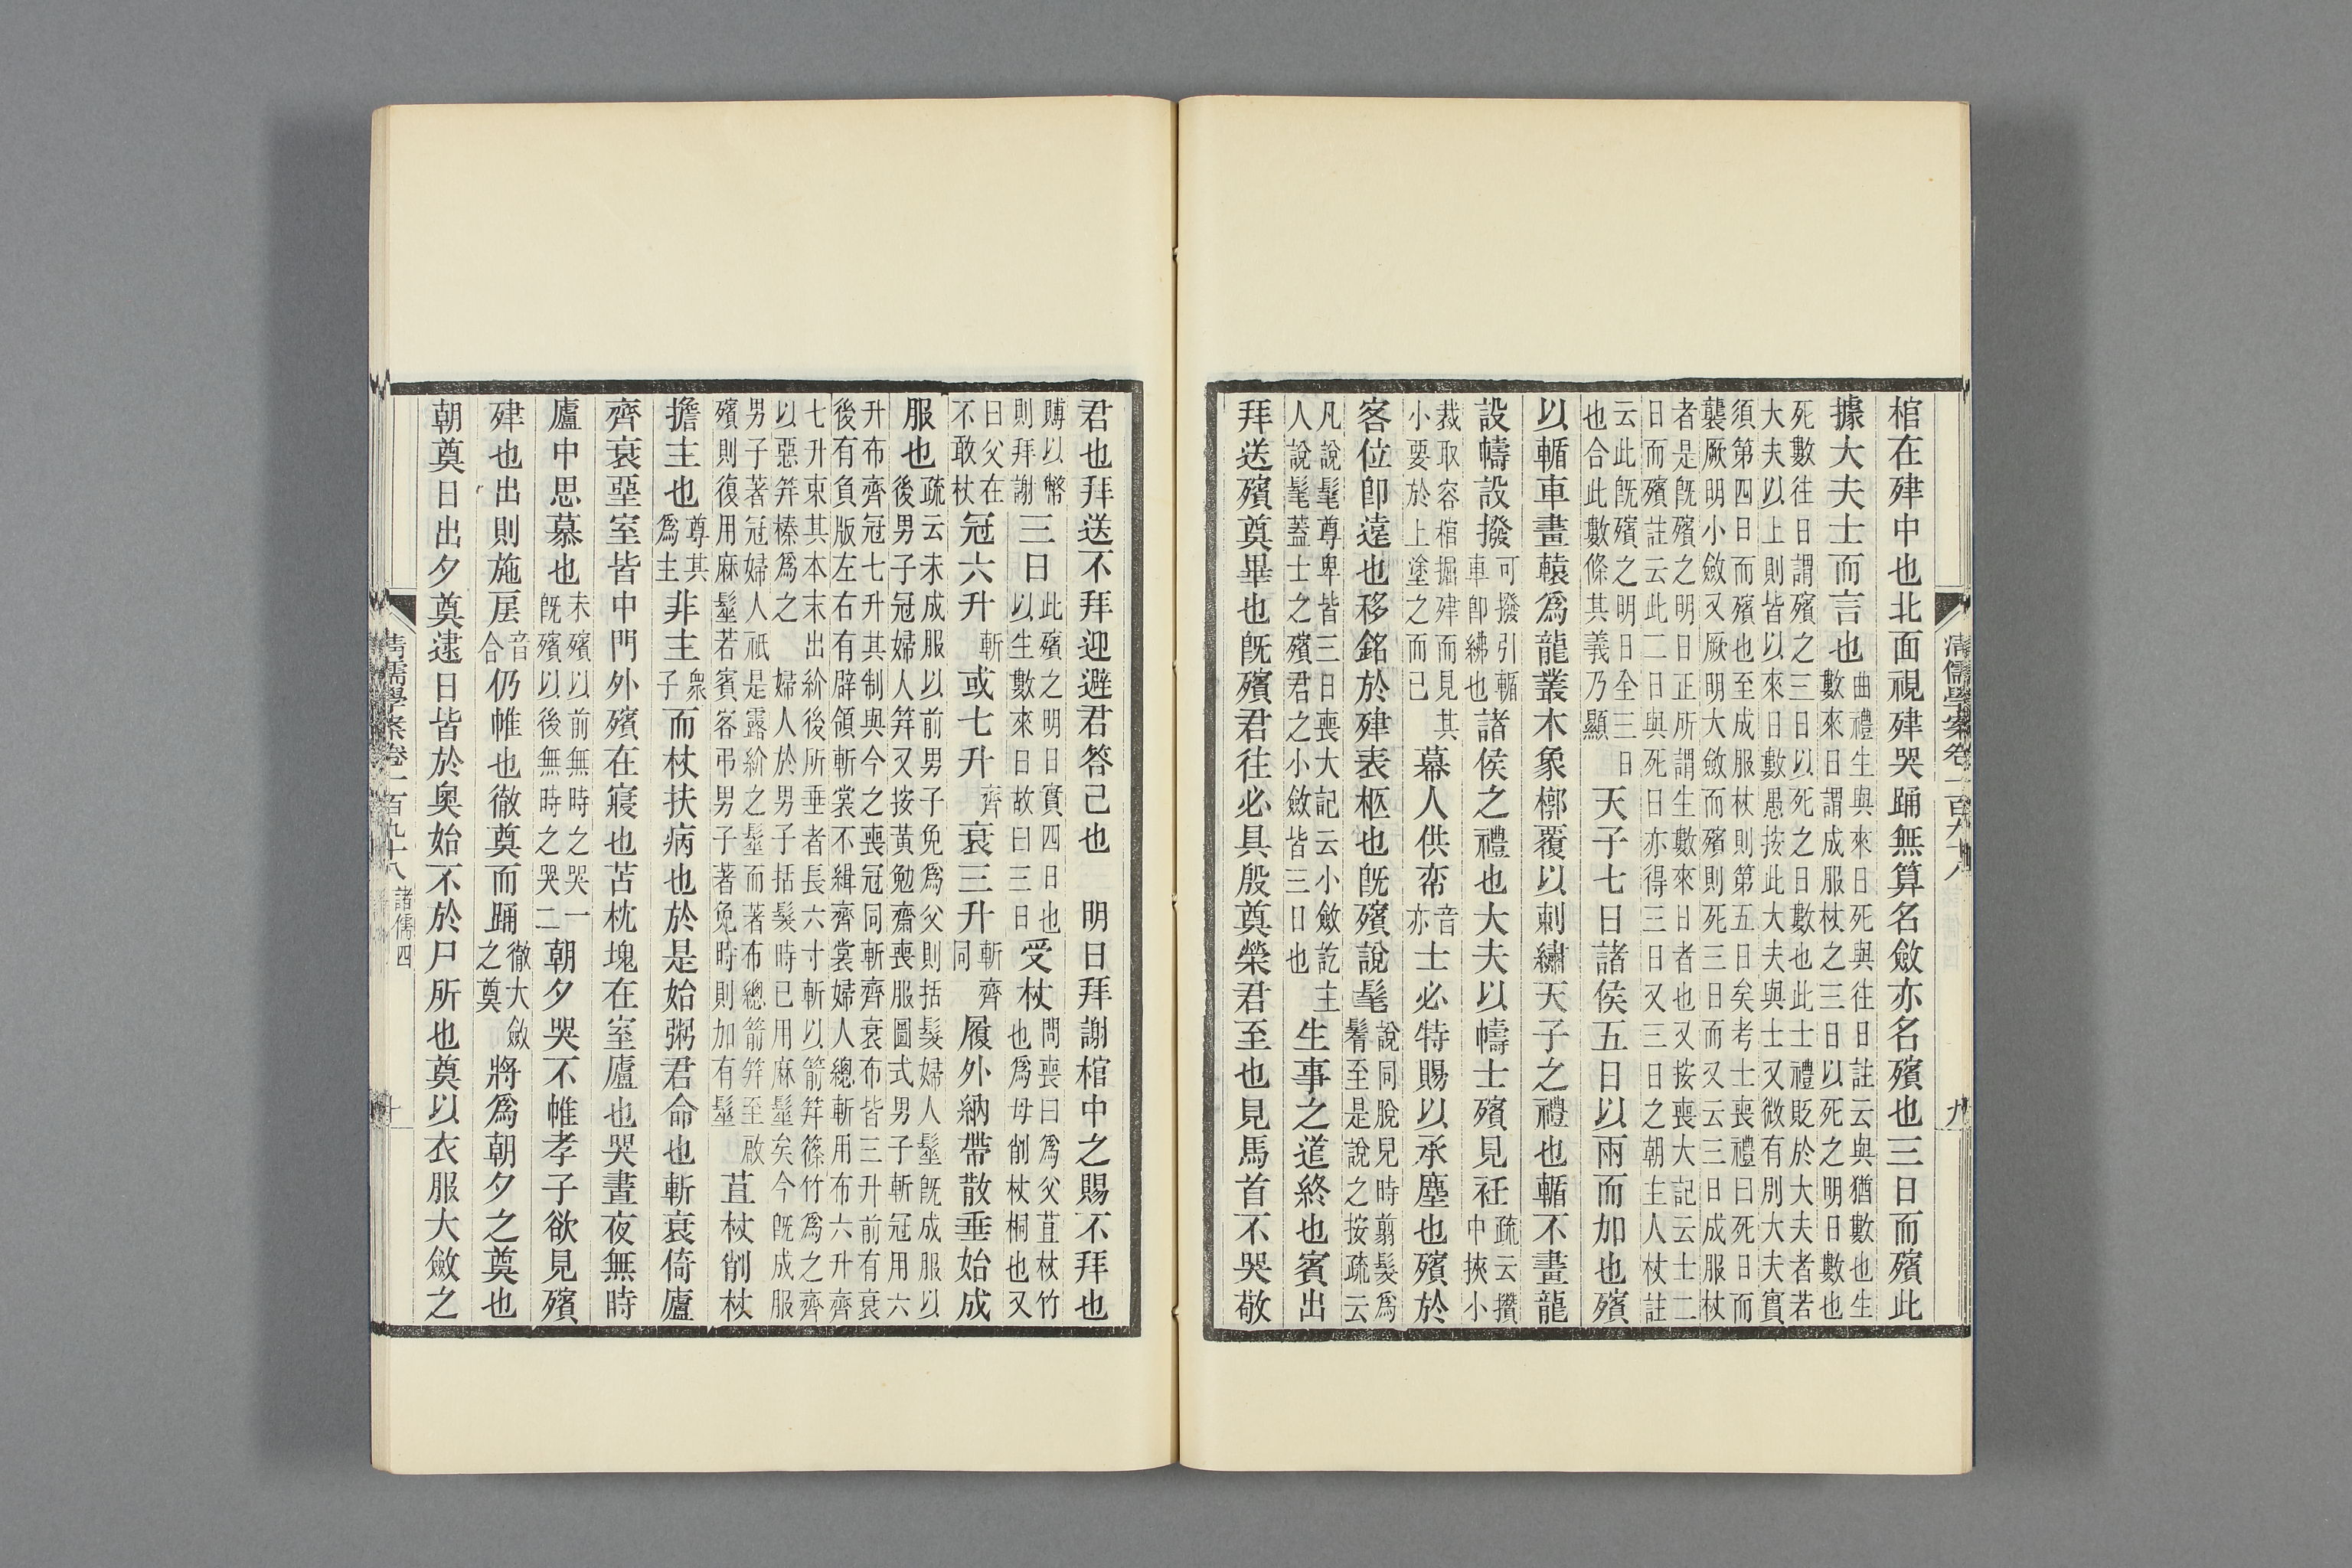 清儒學案卷一百九十八 九
棺在肂中也北面視肂哭踊無算名斂亦名殯也三日而殯此
據大夫士而言也曲禮生與來日死與往日註云與猶數也生
數來日謂成服杖之三日以死之明日數也
死數往日謂殯之三日以死之日數也此士禮貶於大夫者若
大夫以上則皆以來日數愚按此大夫與士又微有別大夫實
須第四日而殯也至成服杖則第五日矣考士喪禮曰死日而
襲厥明小斂又厥明大斂而殯則死三日而又云三日成服杖
者是旣殯之明日正所謂生數來日者也又按喪大記云士二
日而殯註云此二日與死日亦得三日又三日之朝主人杖註
云此旣殯之明日全三日
也合此數條其義乃顯天子七日諸侯五日以兩而加也殯
以輴車畫轅爲龍叢木象槨覆以刺繡天子之禮也輴不畫龍
設幬設撥可撥引輴車卽紼也諸侯之禮也大夫以幬士殯見衽疏云攢中狹小
裁取容棺掘肂而見其小要於上塗之而已幕人供帟音亦士必特賜以承塵也殯於
客位卽遠也移銘於肂表柩也旣殯說髦說同脫兒時翦髮爲鬌至是說之按疏云
凡說髦尊卑皆三日喪大記云小斂訖主人說髦蓋士之殯君之小斂皆三日也生事之道終也賓出
拜送殯奠畢也旣殯君往必具殷奠榮君至也見馬首不哭敬
君也拜送不拜迎避君答己也 明日拜謝棺中之賜不拜也
賻以幣則拜謝三日此殯之明日實四日也以生數來日故曰三日受杖問喪曰爲父苴杖竹也爲母削杖桐也又
曰父在不敢杖冠六升斬或七升齊衰三升斬齊同履外納帶散垂始成
服也疏云未成服以前男子免爲父則括髮婦人髽旣成服以
後男子冠婦人筓又按黃勉齋喪服圖式男子斬冠用六
升布齊冠七升其制與今之喪冠同斬齊衰布皆三升前有衰
後有負版左右有辟領斬裳不緝齊裳婦人總斬用布六升齊
七升束其本末出紒後所垂者長六寸斬以箭筓篠竹爲之齊
以惡筓榛爲之 婦人於男子括髮時已用麻髽矣今旣成服
男子著冠婦人祇是露紒之髽而著布總箭筓至啟
殯則復用麻髽若賓客弔男子著免時則加有髽苴杖削杖
擔主也尊其爲主非主衆子而杖扶病也於是始粥君命也斬衰倚廬
齊衰堊室皆中門外殯在寢也苫枕塊在室廬也哭晝夜無時
廬中思慕也未殯以前無時之哭一旣殯以後無時之哭二朝夕哭不帷孝子欲見殯
肂也出則施扂音合仍帷也徹奠而踊徹大斂之奠將爲朝夕之奠也
朝奠日出夕奠逮日皆於奧始不於尸所也奠以衣服大斂之
清儒學案卷一百九十八 諸儒四 十